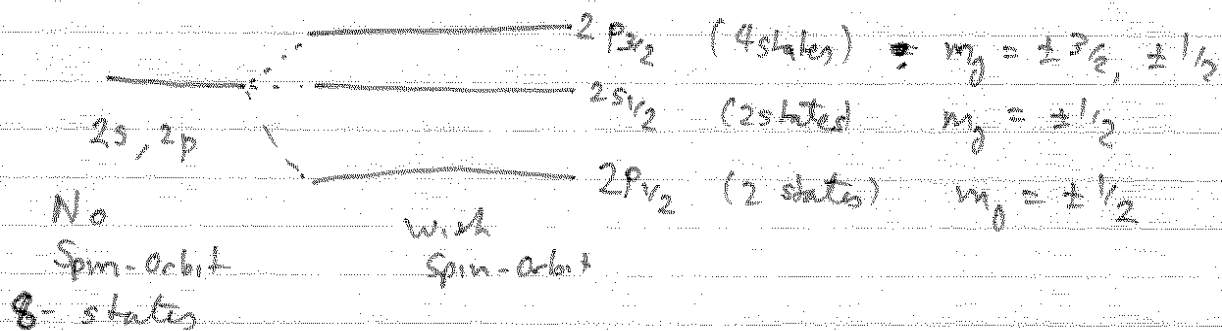 2 P3/2 (4 states) mj = ± 3/2, ± 1/2
2 S1/2 (2 states) mj = ± 1/2
2s, 2p
2P1/2 (2 states) mj = ± 1/2
No
Spin-Orbit
8- states
with
Spin-Orbit